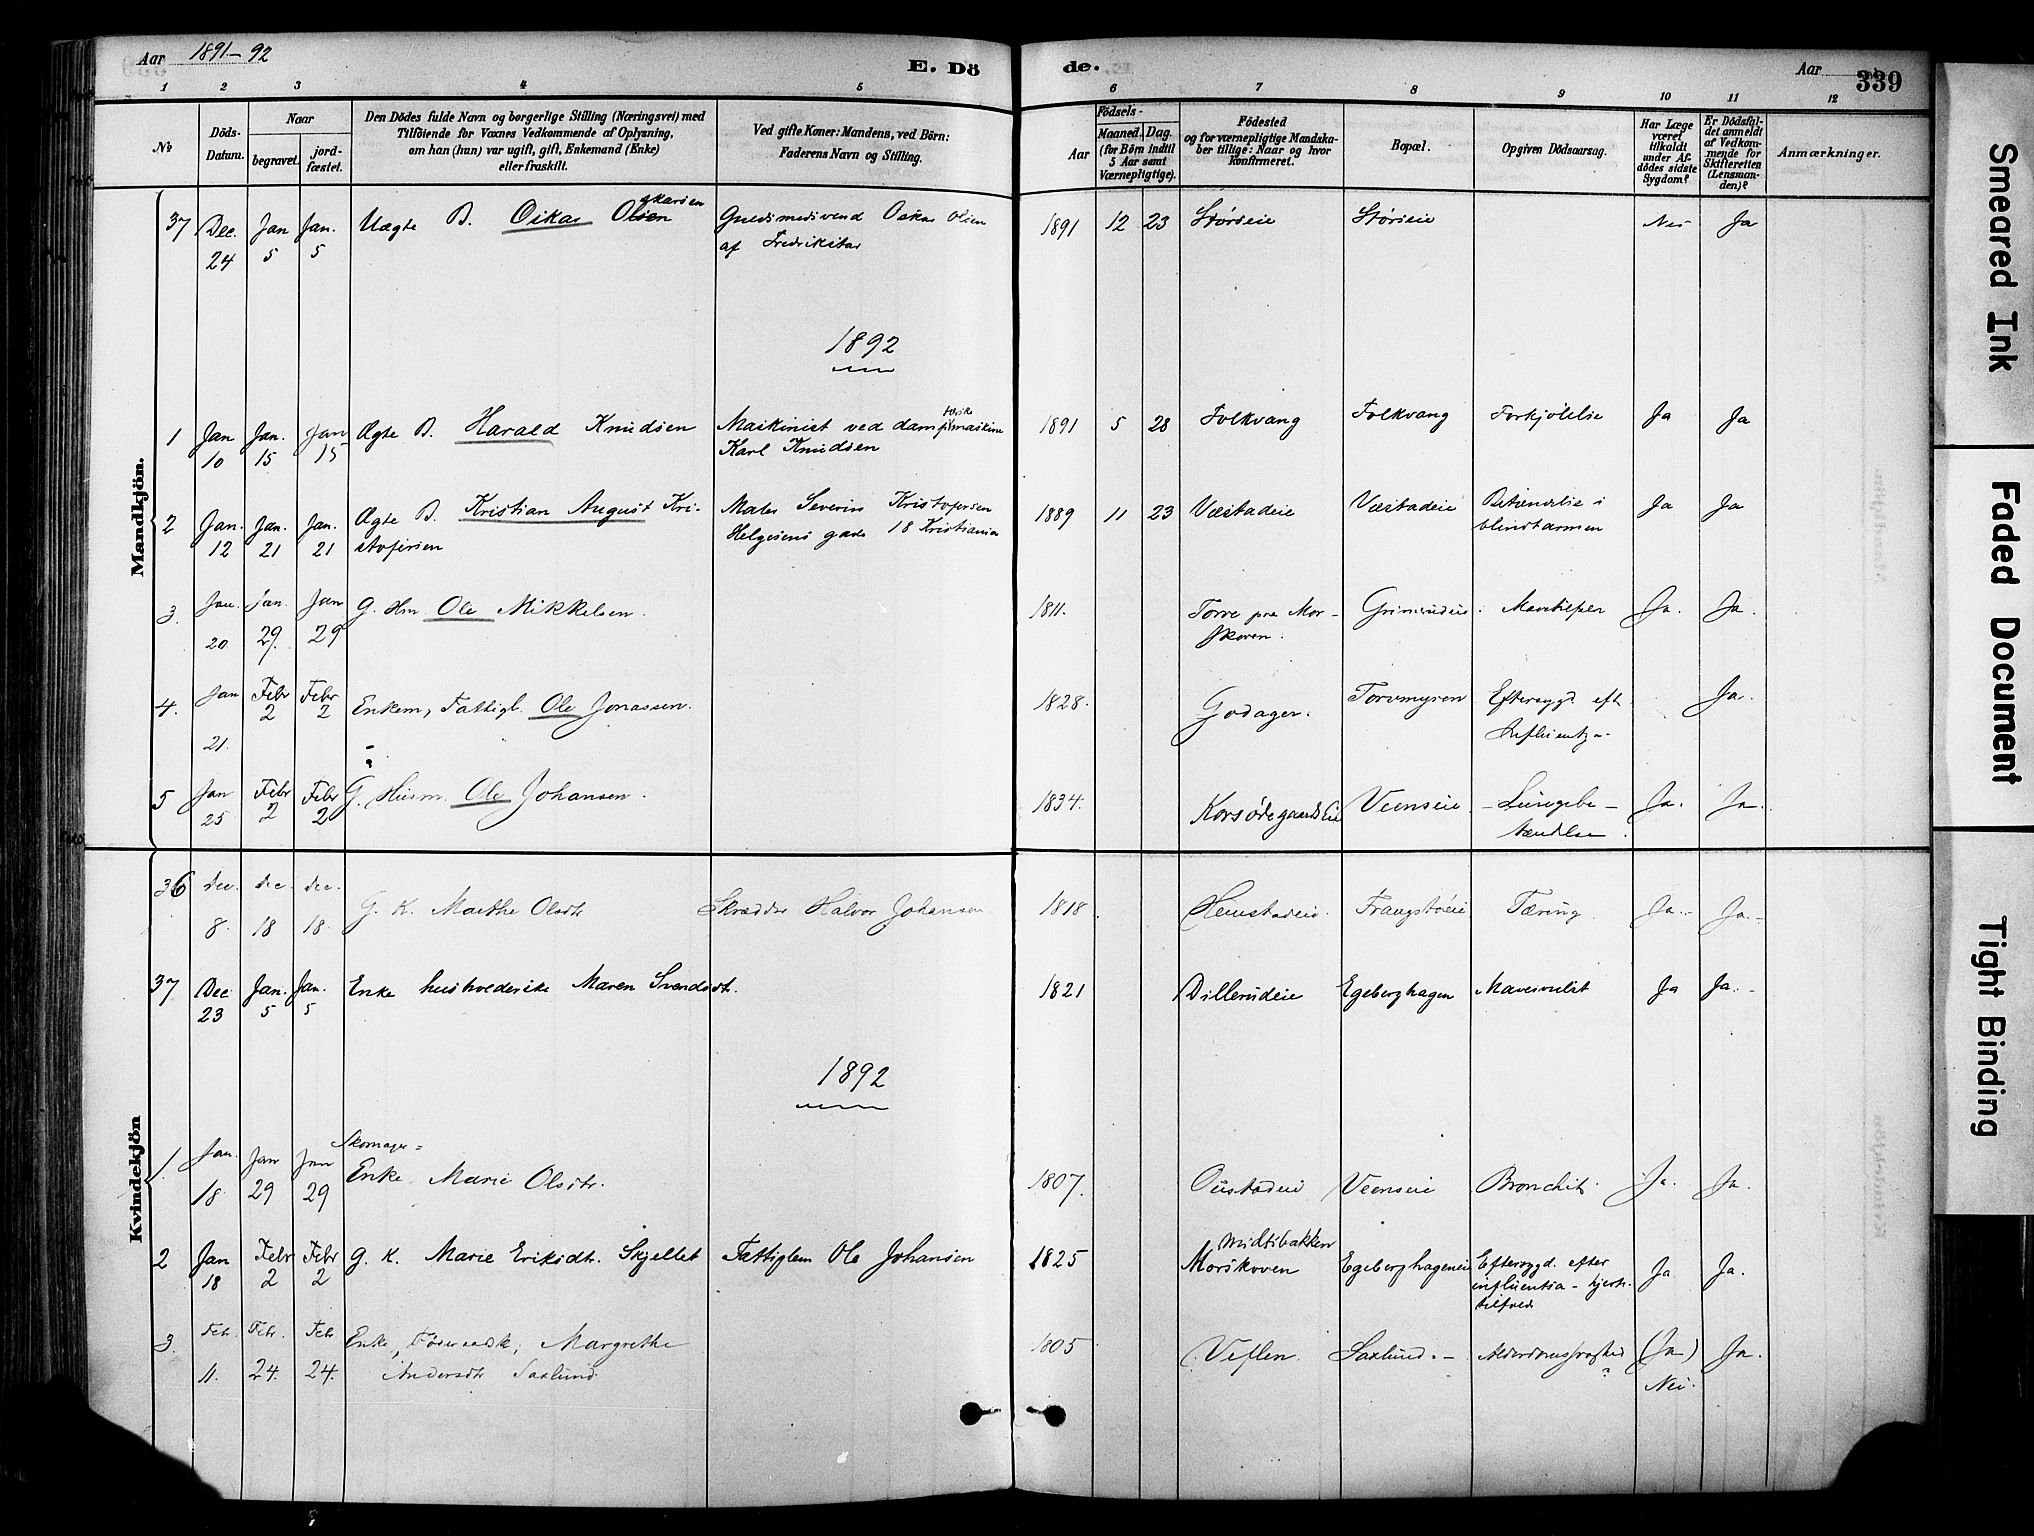 Aar 1891–92
E. Döde.
Aar
339
1 2 3 4 5 6 7 8 9 10 11 12
No
Döds-Datum.
Naar
begravet.
jordfæstet.
Den Dödes fulde Navn og borgerlige Stilling (Næringsvei) med
Tilföiende for Voxnes Vedkommende af Oplysning,
om han (hun) var ugift, gift, Enkemand (Enke)
eller fraskilt.
Ved gifte Koner: Mandens, ved Börn:
Faderens Navn og Stilling.
Födsels-
Aar
Maaned. Dag.
(for Börn indtil
5 Aar samt
Værnepligtige).
Födested
og for værnepligtige Mandska-
ber tillige: Naar og hvor
Konfirmeret.
Bopæl.
Opgiven Dödsaarsag.
Har Læge
været
tilkaldt
under Af-
dödes sidste
Sygdom?
Er Dödsfal-
det anmeldt
af Vedkom-
mende for
Skifteretten
(Lensman-
den)?
Anmærkninger.
Mandkjön.
37 Dec. 24 Jan 5 Jan. 5 Uægte B. Oskar Olsen Oskar Olsen af Fredrikstad 1891 12 23 Störseie Störseie Nei Ja
1892
1 Jan 10 Jan. 15 Jan 15 Ægte B. Harald Knudsen Maskinist ved damptærskemaskine
Karl Knudsen 1891 5 28 Folkvang Folkvang Forkjölelse Ja Ja
2 Jan. 12 Jan. 21 Jan. 21 Ægte B. Kristian August Kri-
stofersen Maler Severin Kristofersen
Helgesens gade 18 Kristiania 1889 11 23 Væstadeie Væstadeie Betændelse i
blindtarmen Ja Ja
3. Jan. 20 Jan. 29. Jan 29 G. Hm Ole Mikkelsen. 1811. Torve pra Mor-
skoven. Grimerudeie. Ja. Ja.
4. Jan 21. Febr 2 Febr 2 Enkem, Fattigl. Ole Jonassen. 1828. Godager. Torvmyren Eftersygd. eft.
Influentza- Ja.
5 Jan 25 Febr 2 Febr 2 G. Husm. Ole Johansen. 1834. KorsödegaardsEie Veenseie - Lungebe-
tændelse. Ja. Ja.
Kvindekjön
36 Dec. 8 Dec. 18 Dec. 18. G. K. Marthe Olsdtr Skrædder Halvor Johansen 1818 Hemstadeie. Frangstöeie Tæring Ja. Ja.
37 Dec 23 Jan. 5 Jan. 5 Enke husholderske Maren Svendsdtr. 1821 Dillerudeie Egeberghagen Mavesvulst Ja Ja.
1892
1. Jan. 18 Jan 29 Jan 29 Skomager=
Enke Marie Olsdtr. 1807. Oustadeie Veenseie Bronchit. Ja. Ja.
2 Jan 18 Febr 2 Febr 2 G. K. Marie Eriksdtr. Skjellet Fattiglem Ole Johansen 1825 Midtsbakken
Morskoven Egeberghageneie Eftersygd. efter
influentsa - hjerte
tilfæld Ja Ja.
3. Febr. 11. Febr. 24. Febr 24. Enke, Föderaadsk, Margrethe
Andersdtr Saxlund 1805 Veflen. Saxlund. - Alderdomssvaghed
? (Ja)
Nei. Ja.
Smeared Ink
Faded Document
Tight Binding